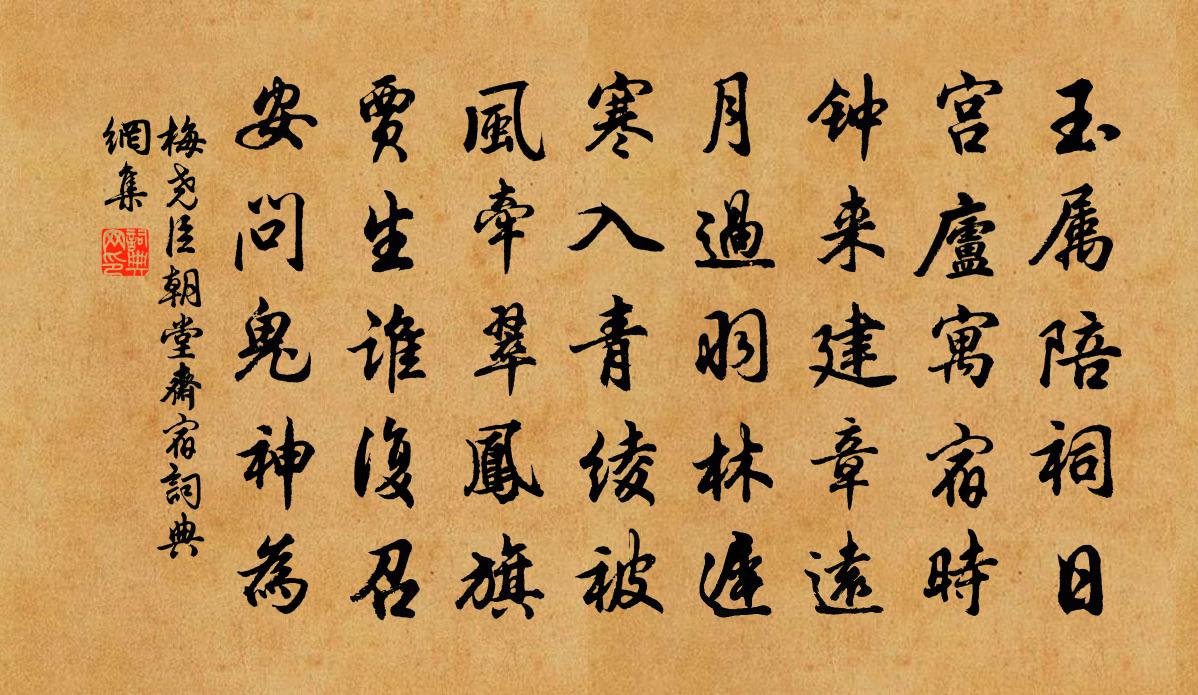 玉属陪祠日
宫廬寓宿時
钟来建章遠
月過羽林遲
寒入青绫被
風牽翠鳳旗
賈生谁復召
安問鬼神為
梅尧臣朝堂齋宿詞典
網集
詞典
网印